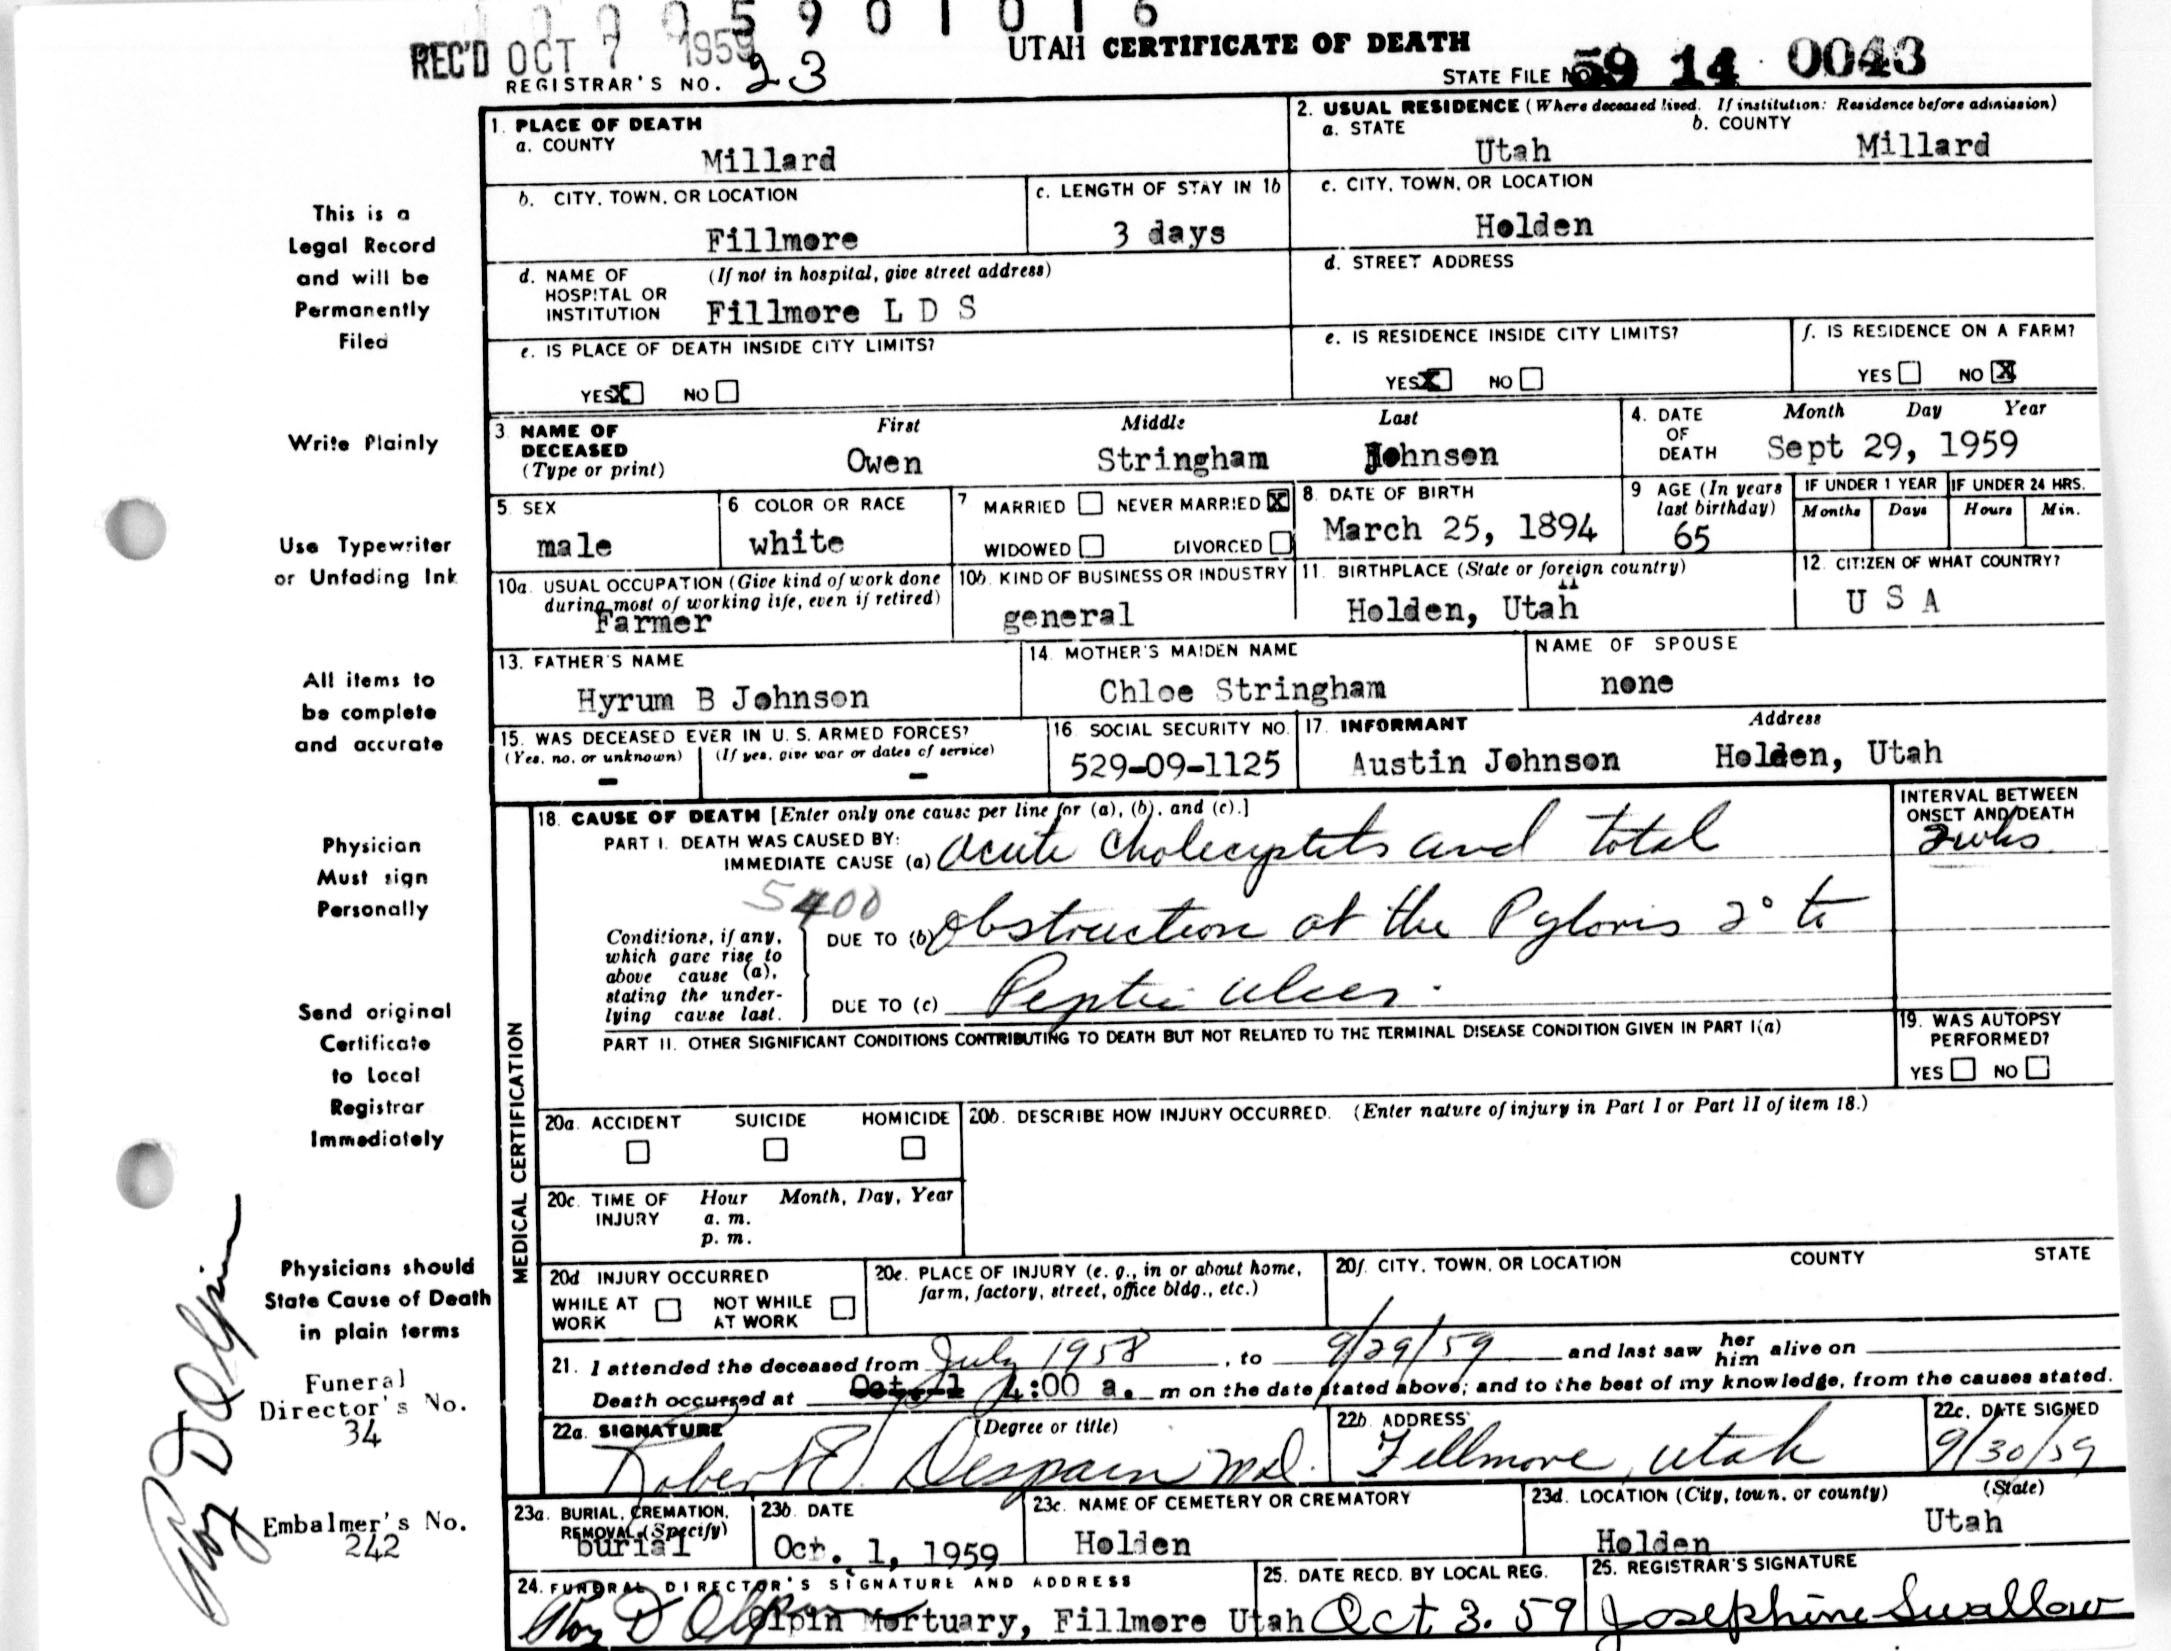 0 0 0 5 9 0 1 0 1 6
REC'D OCT 7 1959
UTAH CERTIFICATE OF DEATH
REGISTRAR'S NO. 23
STATE FILE NO. 59 14 0043
1. PLACE OF DEATH
a. COUNTY
Millard
2. USUAL RESIDENCE (Where deceased lived. If institution: Residence before admission)
a. STATE
Utah
b. COUNTY
Millard
b. CITY, TOWN, OR LOCATION
Fillmore
c. LENGTH OF STAY IN 1b
3 days
c. CITY, TOWN, OR LOCATION
Holden
d. NAME OF HOSPITAL OR INSTITUTION
(If not in hospital, give street address)
Fillmore L D S
d. STREET ADDRESS
e. IS PLACE OF DEATH INSIDE CITY LIMITS?
YES X NO
e. IS RESIDENCE INSIDE CITY LIMITS?
YES X NO
f. IS RESIDENCE ON A FARM?
YES NO X
3 NAME OF DECEASED (Type or print)
First Middle Last
Owen Stringham Johnson
4. DATE OF DEATH
Month Day Year
Sept 29, 1959
5. SEX
male
6 COLOR OR RACE
white
7 MARRIED NEVER MARRIED X
WIDOWED DIVORCED
8 DATE OF BIRTH
March 25, 1894
9 AGE (In years last birthday)
65
IF UNDER 1 YEAR
Months Days
IF UNDER 24 HRS.
Hours Min.
10a. USUAL OCCUPATION (Give kind of work done
during most of working life, even if retired)
Farmer
10b. KIND OF BUSINESS OR INDUSTRY
general
11. BIRTHPLACE (State or foreign country)
Holden, Utah
12. CITIZEN OF WHAT COUNTRY?
U S A
13. FATHER'S NAME
Hyrum B Johnson
14. MOTHER'S MAIDEN NAME
Chloe Stringham
NAME OF SPOUSE
none
15. WAS DECEASED EVER IN U. S. ARMED FORCES?
(Yes, no, or unknown) (If yes, give war or dates of service)
– –
16 SOCIAL SECURITY NO.
529-09-1125
17. INFORMANT Address
Austin Johnson Holden, Utah
MEDICAL CERTIFICATION
18. CAUSE OF DEATH [Enter only one cause per line for (a), (b), and (c).]
INTERVAL BETWEEN
ONSET AND DEATH
PART I. DEATH WAS CAUSED BY:
IMMEDIATE CAUSE (a) Acute Cholecystits and total
2 wks
5400
Conditions, if any,
which gave rise to
above cause (a),
stating the under-
lying cause last.
DUE TO (b) Obstruction at the Pyloris 2° to
DUE TO (c) Peptic ulcer.
PART II. OTHER SIGNIFICANT CONDITIONS CONTRIBUTING TO DEATH BUT NOT RELATED TO THE TERMINAL DISEASE CONDITION GIVEN IN PART I(a)
19. WAS AUTOPSY
PERFORMED?
YES NO
20a. ACCIDENT SUICIDE HOMICIDE
20b. DESCRIBE HOW INJURY OCCURRED. (Enter nature of injury in Part I or Part II of item 18.)
20c. TIME OF INJURY
Hour Month, Day, Year
a. m.
p. m.
20d INJURY OCCURRED
WHILE AT WORK NOT WHILE AT WORK
20e. PLACE OF INJURY (e. g., in or about home,
farm, factory, street, office bldg., etc.)
20f. CITY, TOWN, OR LOCATION COUNTY STATE
21. I attended the deceased from July 1958, to 9/29/59 and last saw her him alive on
Death occurred at Oct. 1 4:00 a. m on the date stated above; and to the best of my knowledge, from the causes stated.
22a. SIGNATURE (Degree or title)
Robert E. Despain MD.
22b. ADDRESS
Fillmore, Utah
22c. DATE SIGNED
9/30/59
23a. BURIAL, CREMATION,
REMOVAL (Specify)
burial
23b. DATE
Oct. 1, 1959
23c. NAME OF CEMETERY OR CREMATORY
Holden
23d. LOCATION (City, town, or county) (State)
Holden Utah
24. FUNERAL DIRECTOR'S SIGNATURE AND ADDRESS
Roy D Olpin Olpin Mortuary, Fillmore Utah
25. DATE RECD. BY LOCAL REG.
Oct 3. 59
25. REGISTRAR'S SIGNATURE
Josephine Swallow
This is a
Legal Record
and will be
Permanently
Filed
Write Plainly
Use Typewriter
or Unfading Ink
All items to
be complete
and accurate
Physician
Must sign
Personally
Send original
Certificate
to Local
Registrar
Immediately
Physicians should
State Cause of Death
in plain terms
Funeral
Director's No.
34
Embalmer's No.
242
Roy D Olpin